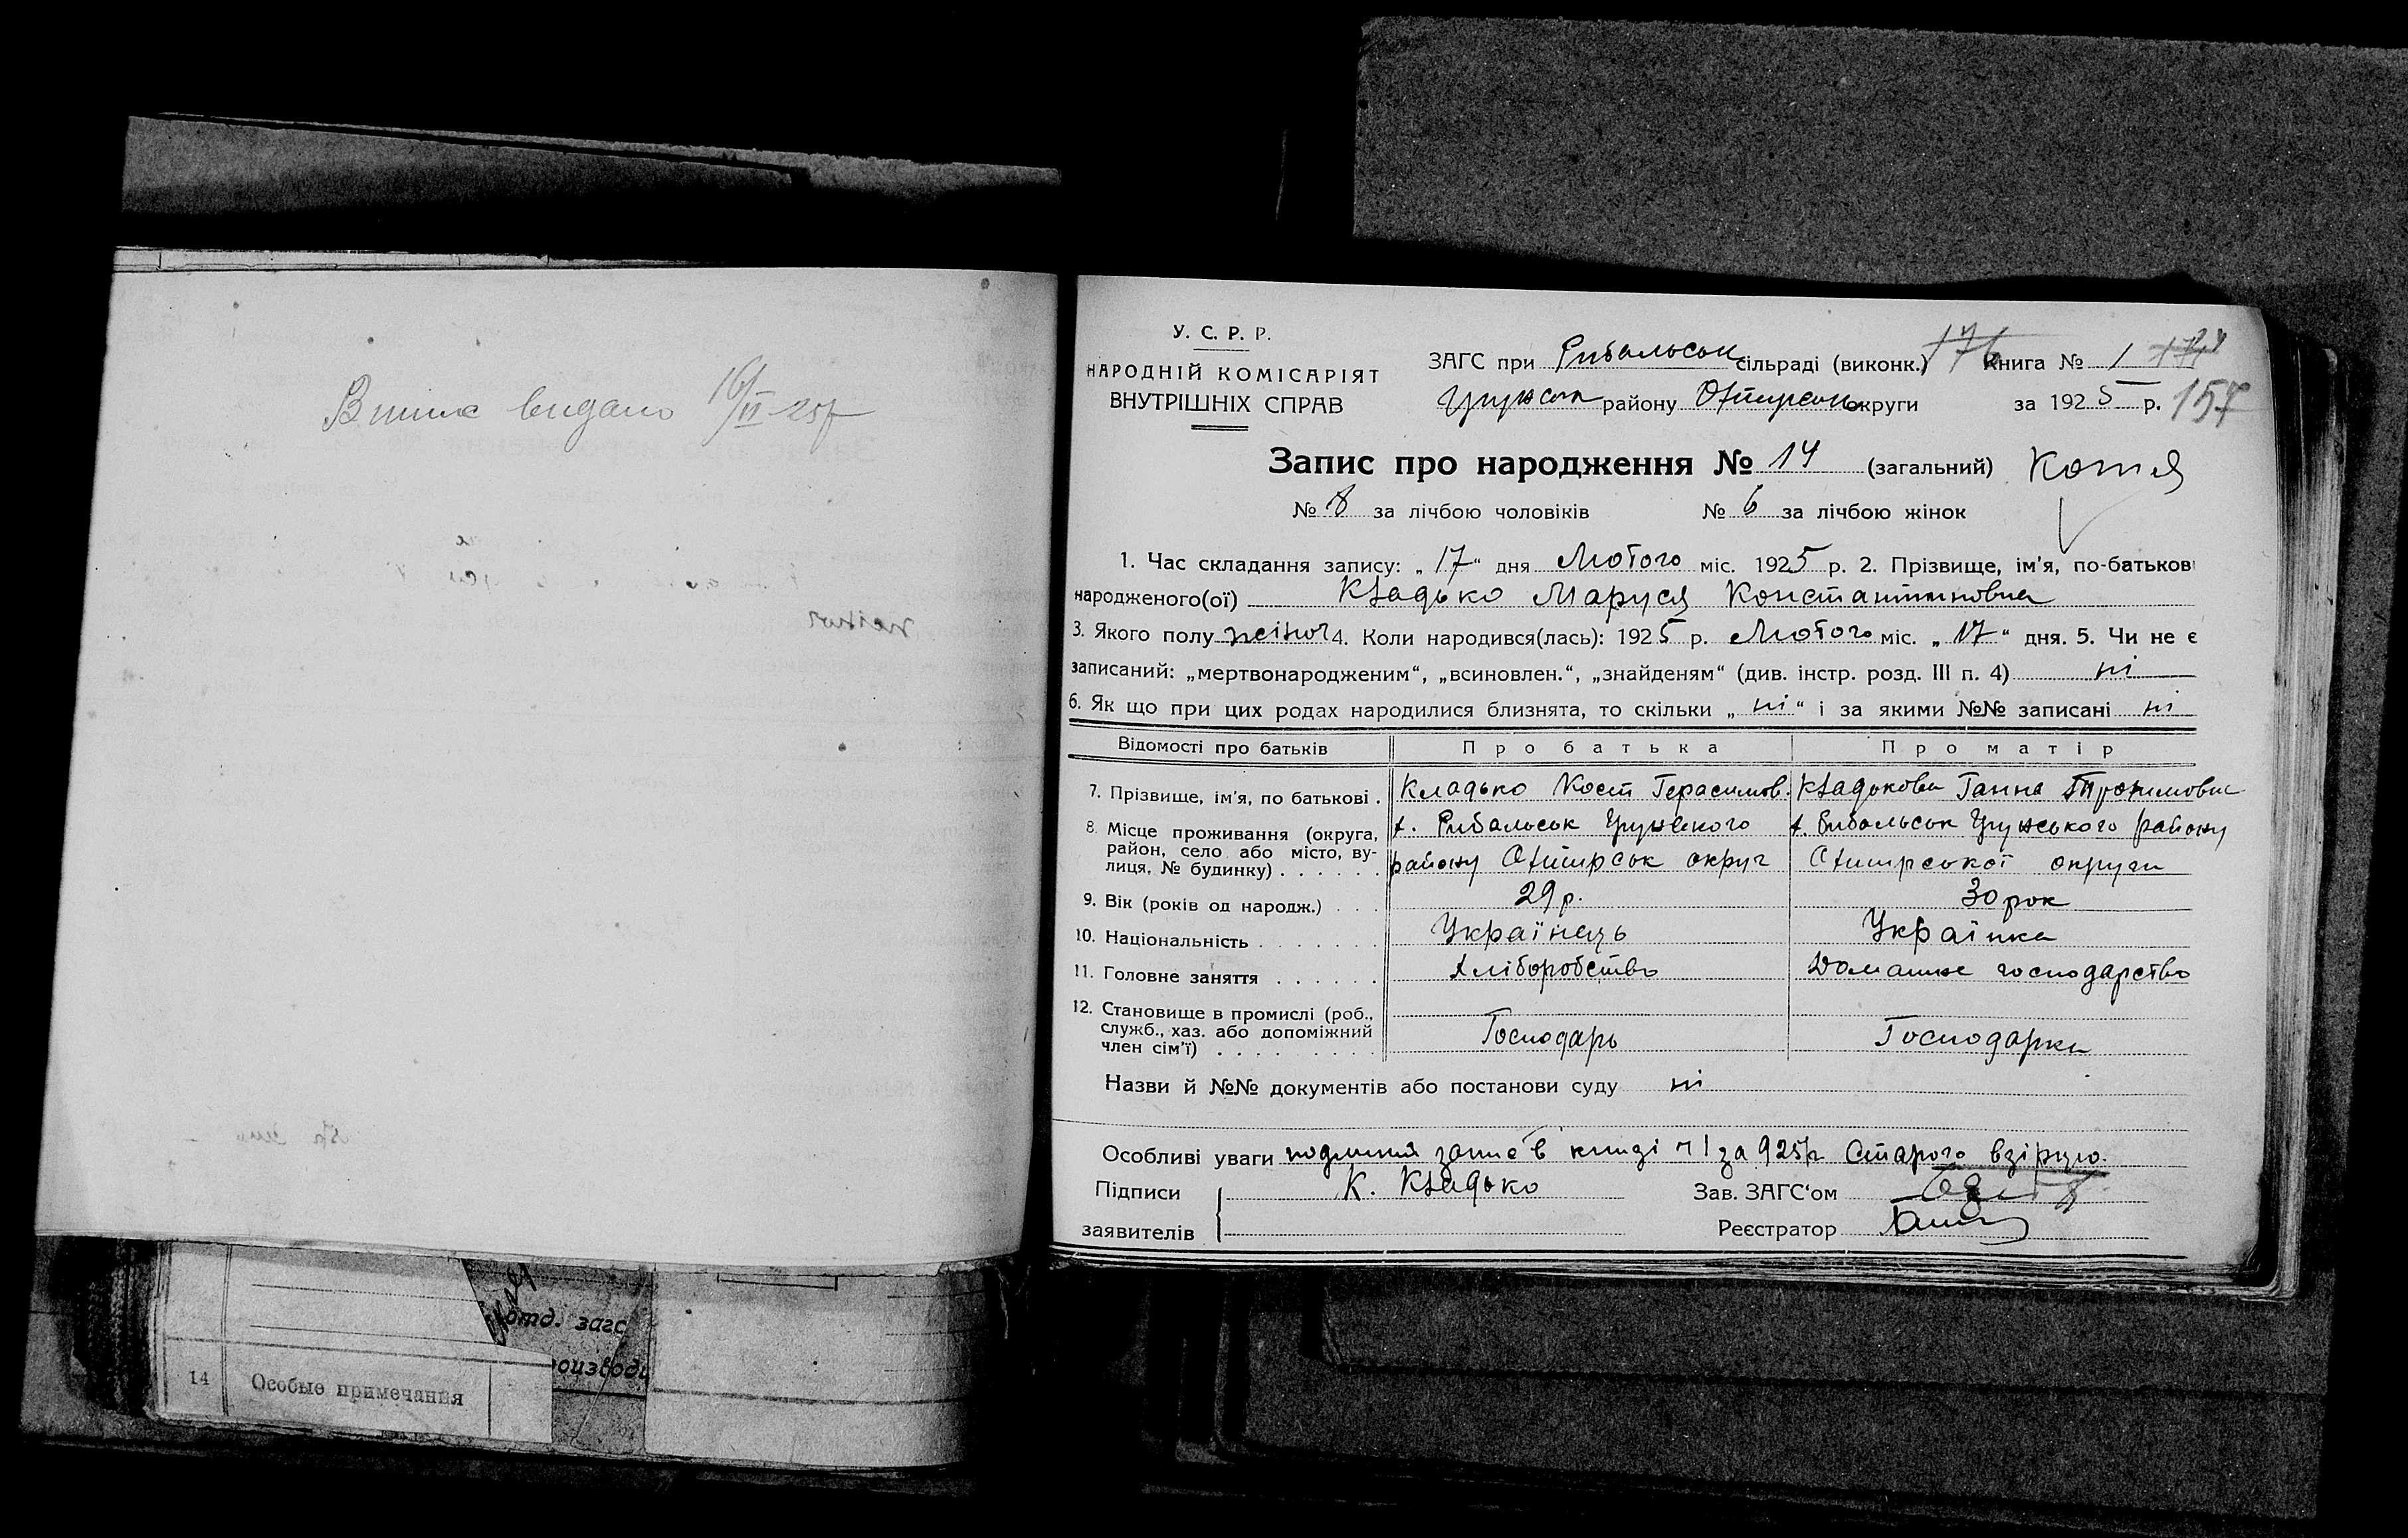 Витяг видано 16/II-25р
отд. загс
14 Особые примечания
У. С. Р. Р.
НАРОДНІЙ КОМІСАРІЯТ
ВНУТРІШНІХ СПРАВ
ЗАГС при Рибальськ сільраді (виконк.) 176 Книга № 1
Грунськ району Охтирськ округи за 1925 р. 157
Запис про народження № 14 (загальний) Копія
№ 8 за лічбою чоловіків № 6 за лічбою жінок
1. Час складання запису: „17“ дня Лютого міс. 1925 р. 2. Прізвище, ім'я, по-батькові
народженого(ої) Кладько Маруся Константиновна
3. Якого полу жіноч 4. Коли народився(лась): 1925 р. Лютого міс. „17“ дня. 5. Чи не є
записаний: „мертвонародженим“, „всиновлен.“, „знайденям“ (див. інстр. розд. III п. 4) ні
6. Як що при цих родах народилися близнята, то скільки „ні“ і за якими №№ записані ні
Відомості про батьків Про батька Про матір
7. Прізвище, ім'я, по батькові . Кладько Кост Герасимов. Кладькова Ганна Трохимовна
8. Місце проживання (округа, х. Рибальськ Грунського х. Рибальськ Грунського району
район, село або місто, ву-
лиця, № будинку) . . . . . . району Охтирськ округ Охтирської округи
9. Вік (років од народж.) . . . 29 р. 30 рок
10. Національність . . . . . . . Українець Українка
11. Головне заняття . . . . . . Хліборобство Домашнє господарство
12. Становище в промислі (роб.,
служб., хаз. або допоміжний
член сім'ї) . . . . . . . . . Господарь Господарка
Назви й №№ документів або постанови суду ні
Особливі уваги подлиний запис в книзі ч 1 за 925 р. Старого взірцю.
Підписи К. Кладько Зав. ЗАГС'ом
заявителів Реєстратор